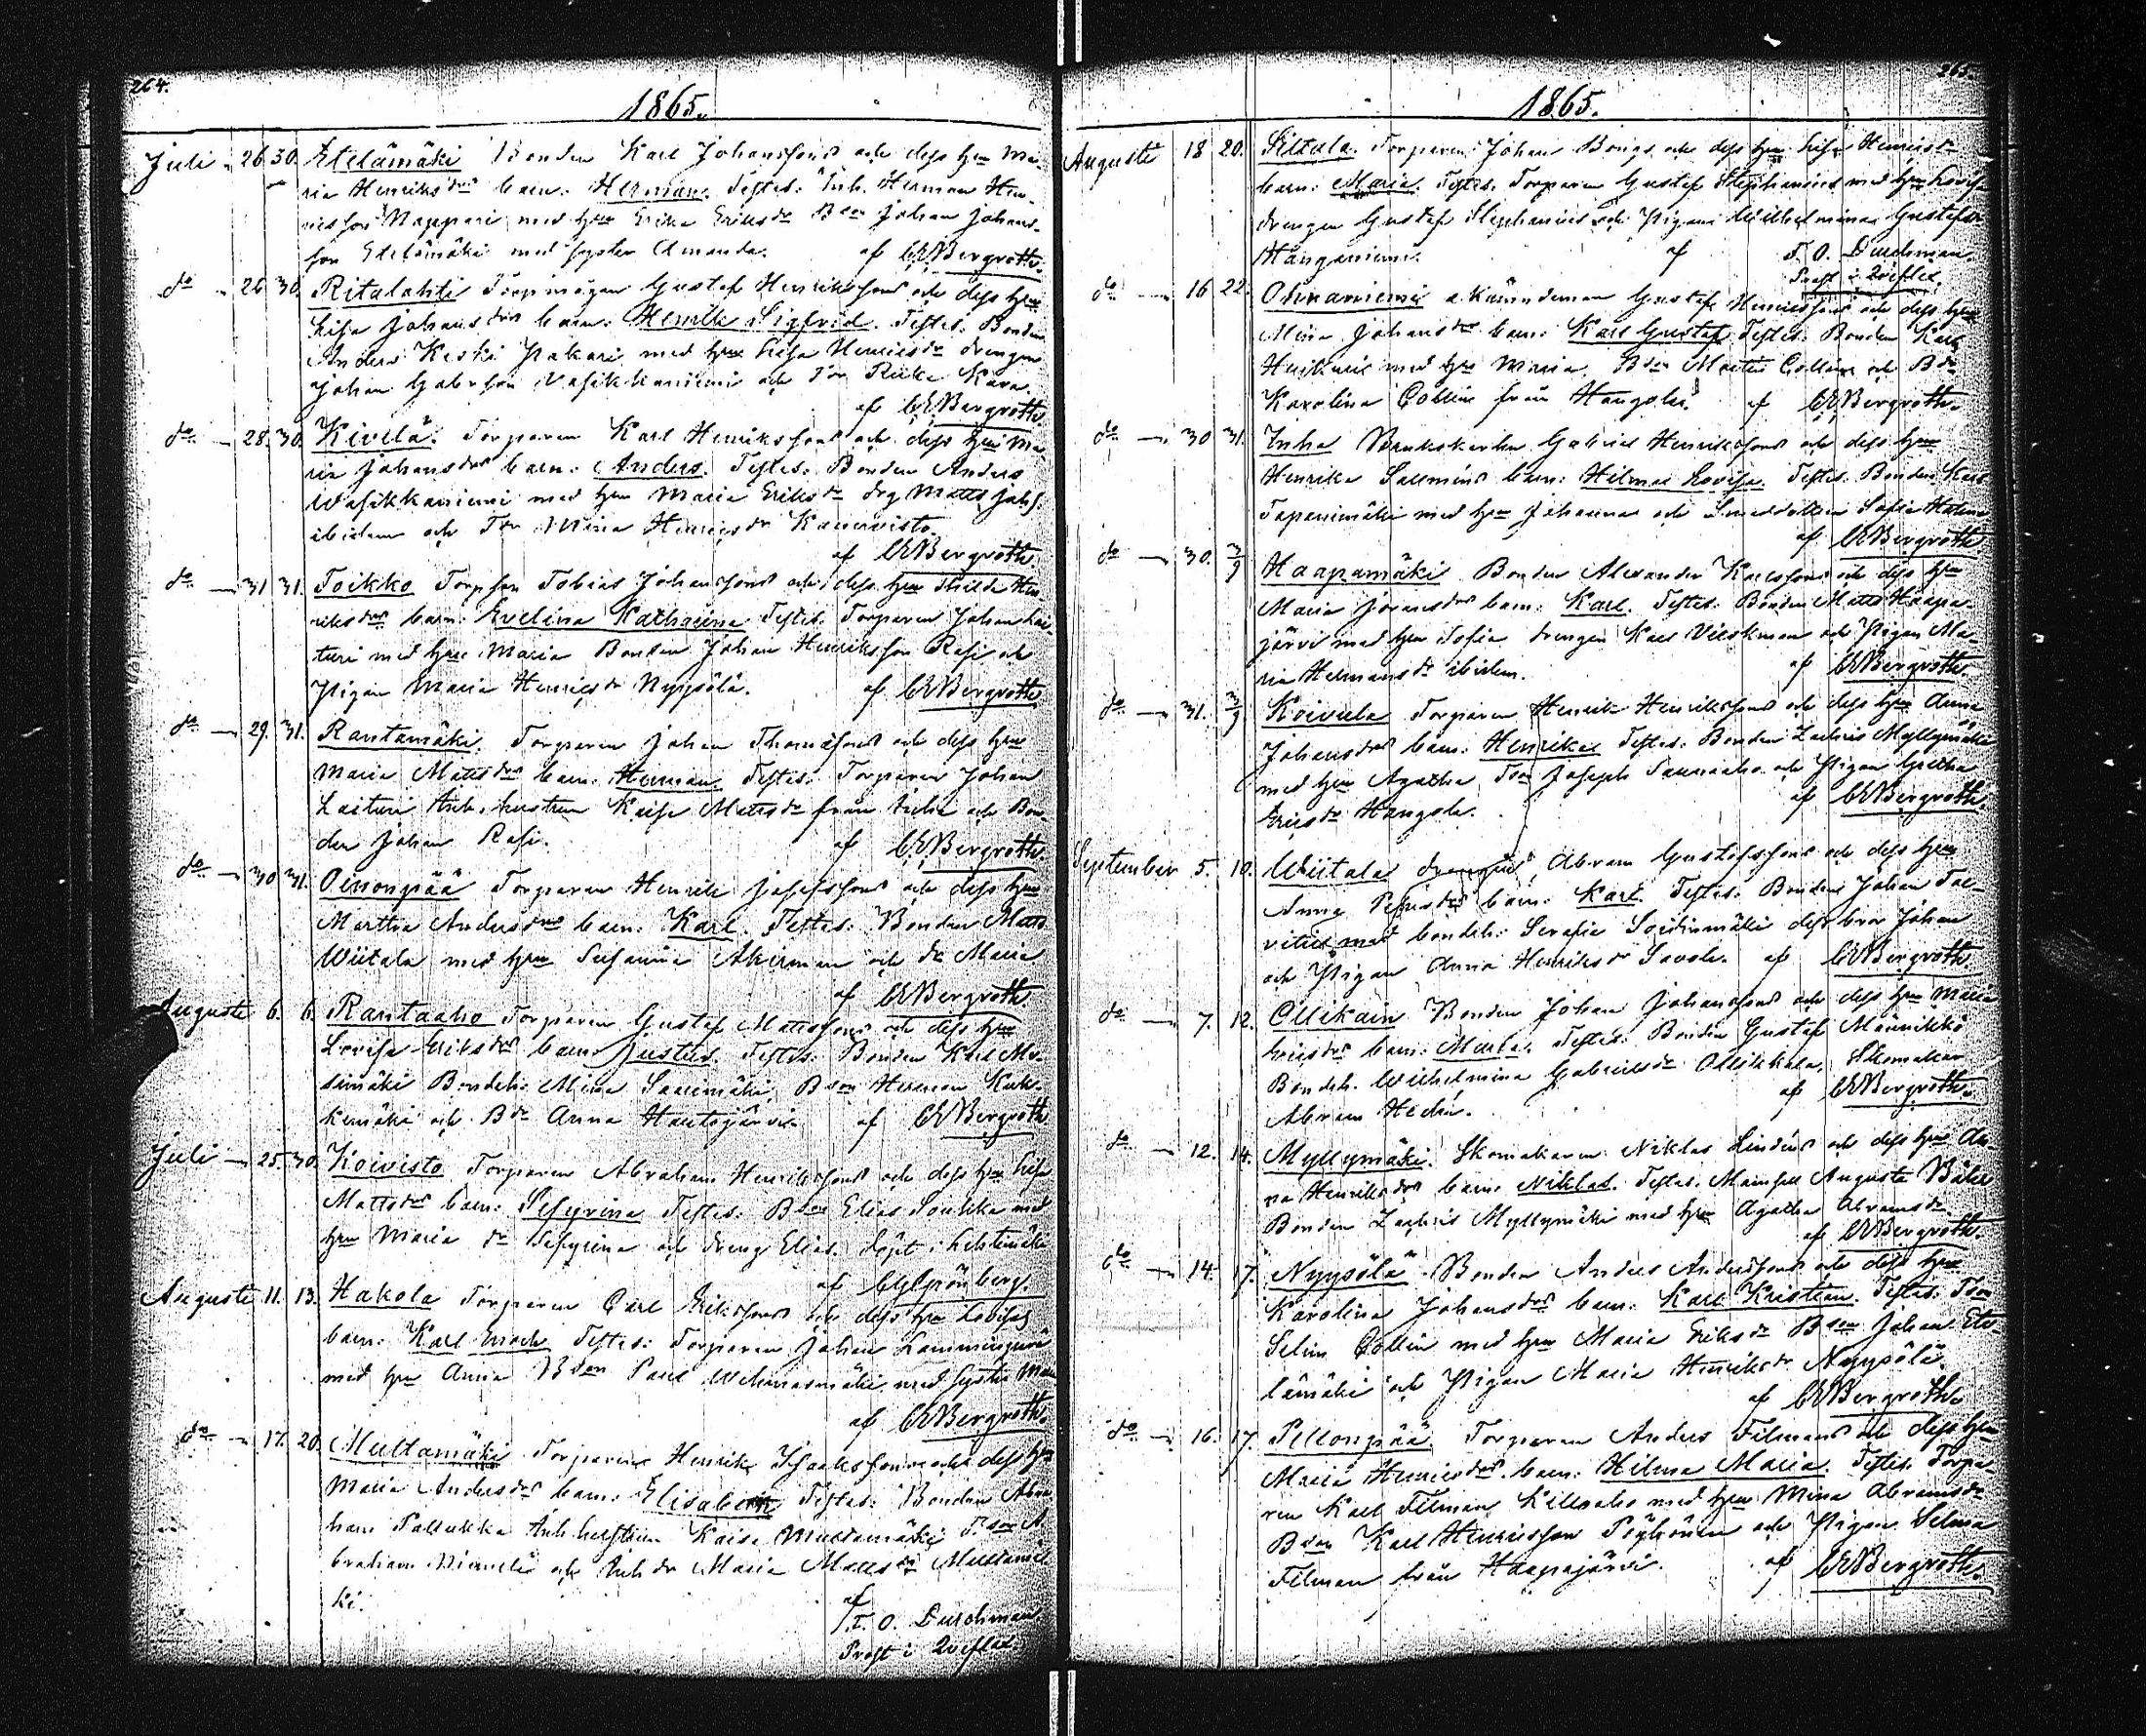 264.
1865.
Juli - 26 30. Etelämäki Bonden Karl Johanssons och dess hru Ma-
ria Henriksdrs barn: Herman. Testes: Inh. Herman Hen-
ricsson Nappari med hru Erika Eriksdr Bson Johan Johans-
son Etelämäki med syster Amanda. af CEBergroth.
do - 26 30. Ritalahti Gustaf Henrikssons och dess hru
Lisa Johansdrs barn: Henrik Sigfrid. Testes: Bonden
Anders Keski med hru Lisa Henricsdr drengen
Johan och
af CEBergroth.
do - 28. 30. Kivelä. Torparen Karl Henrikssons och dess hru Ma-
ria Johansdrs barn: Anders. Testes: Bonden Anders
Wasikkaniemi med hru Maria Eriksdr drg Matts
ibidem och Tdr Mina Henricsdr
af CEBergroth
do - 31 31. Toikko Torpson Tobias Johanssons och dess hru Hen-
riksdrs barn: Evelina Katharina Testes: Torparen Johan Lai-
turi med hru Maria Bonden Johan Henriksson Rasi och
Pigan Maria Henricsdr Nyysölä. af CEBergroth
do - 29. 31. Rantamäki. Torparen Johan Thomassons och dess hru
Maria Mattsdrs barn: Herman. Testes: Torparen Johan
Laituri Inh. hustrun Kaisa Mattsdr från och Bon-
den Johan Rasi. af CEBergroth.
do - 30 31. Oinonpää Torparen Henrik Josefssons och dess hru
Martha Andersdrs barn: Karl. Testes: Bonden Matts
Wiitala med hru Susanna Akerman och dr Maria
af CEBergroth
Augusti 6. 6. Rantaaho Torparen Gustaf Mattssons och dess hru
Lovisa Eriksdrs barn: Justus. Testes: Bonden Karl
Bondeh: Mina Saarimäki, Bson Herman
och Bdr Anna Hautojärvi. af CEBergroth
Juli - 25. 30. Koivisto Torparen Abraham Henrikssons och dess hru Lisa
Mattsdrs barn: Sefyrina Testes: Bson Elias Soukka med
hru Maria dr Sefyrina och dreng Elias. döpt i Lehtimäki
af
Augusti 11. 13. Hakola Torparen Carl Erikssons och dess hru Lovisas
barn: Karl Enoch Testes: Torparen Johan
med hru Anna Bson Paul med syster
af CEBergroth.
do - 17. 20. Multamäki Torparen Henrik Isaakssons och dess hru
Maria Andersdrs barn: Elisabeth Testes: Bonden Abra-
ham Inh. hustrun Kaisa Multamäki Bson A-
braham och Inh. dr Maria Mattsdr Multamä-
ki. af
F. O. Durchman.
Prost i
265.
1865.
Augusti 18 20. Siltala. Torparen Johan och dess hru Lisa Henricsdr
barn: Maria. Testes. Torparen Gustaf Stephanius med hru Lovisa
drengen Gustaf Stephanius och Pigan Wilhelmina Gustafsdr
Hanganiemi. af F. O. Durchman.
Prost i
do - 16 22. Gustaf Henricssons och dess hru
Mina Johansdrs barn: Karl Gustaf Testes: Bonden Karl
med hru Maria. Bson Collin och Bdr
Karolina Collin från Hangola. af CEBergroth.
do - 30 31. Inha Gabriel Henrikssons och dess hru
Henrika barn: Hilma Lovisa. Testes: Bonden Karl
Tapanimäki med hru Johanna och Sofia
af CEBergroth
do - 30. 3/9 Haapamäki Bonden Alexander Karlssons och dess hru
Maria barn: Karl. Testes: Bonden Matts Haapa-
järvi med hru Sofia drengen Karl och Pigan Ma-
ria Hermansdr ibidem. af CEBergroth.
do - 31. 3/9 Koivula Torparen Henrik Henrikssons och dess hru Anna
Johansdrs barn: Henrika Testes: Bonden Zachris Myllymäki
med hru Agatha Tson Joseph och Pigan Gretha
Ericsdr Hangola. af CEBergroth
September 5. 10. Wiitala Abram Gustafssons och dess hru
Anna barn: Karl. Testes: Bonden Johan
med bondeh: Serafia Soidinmäki dess bror Johan
och Pigan Anna Henriksdr af CEBergroth.
do - 7. 12. Ollikain Bonden Johan Johanssons och dess hru Maria
barn: Testes: Bonden Gustaf Männikkö
Bondeh. Wilhelmina Gabrielsdr Ollikkala, Skomakar
Abram Hedin. af CEBergroth.
do - 12. 14. Myllymäki. Skomakaren Niklas Lindéns och dess hru An-
na Henriksdrs barn: Niklas. Testes. Mamsell Augusta
Bonden Zachris Myllymäki med hru Agatha Abramsdr
af CEBergroth.
do - 14. 17. Nyysölä Bonden Anders Anderssons och dess hru
Karolina Johansdrs barn: Karl Kristian. Testes: Tson
Selim Collin med hru Maria Eriksdr Bson Johan Ete-
lämäki och Pigan Maria Henriksdr Nyysölä
af CEBergroth.
do - 16. 17. Pellonpää. Torparen Anders Filmans och dess hru
Maria Henricsdrs barn: Hilma Maria. Testes. Torpa-
ren Karl Filman med hru Mina Abramsdr
Bson Karl Henricsson Pöyhönen och Pigan Selma
Filman från Haapajärvi. af CEBergroth.